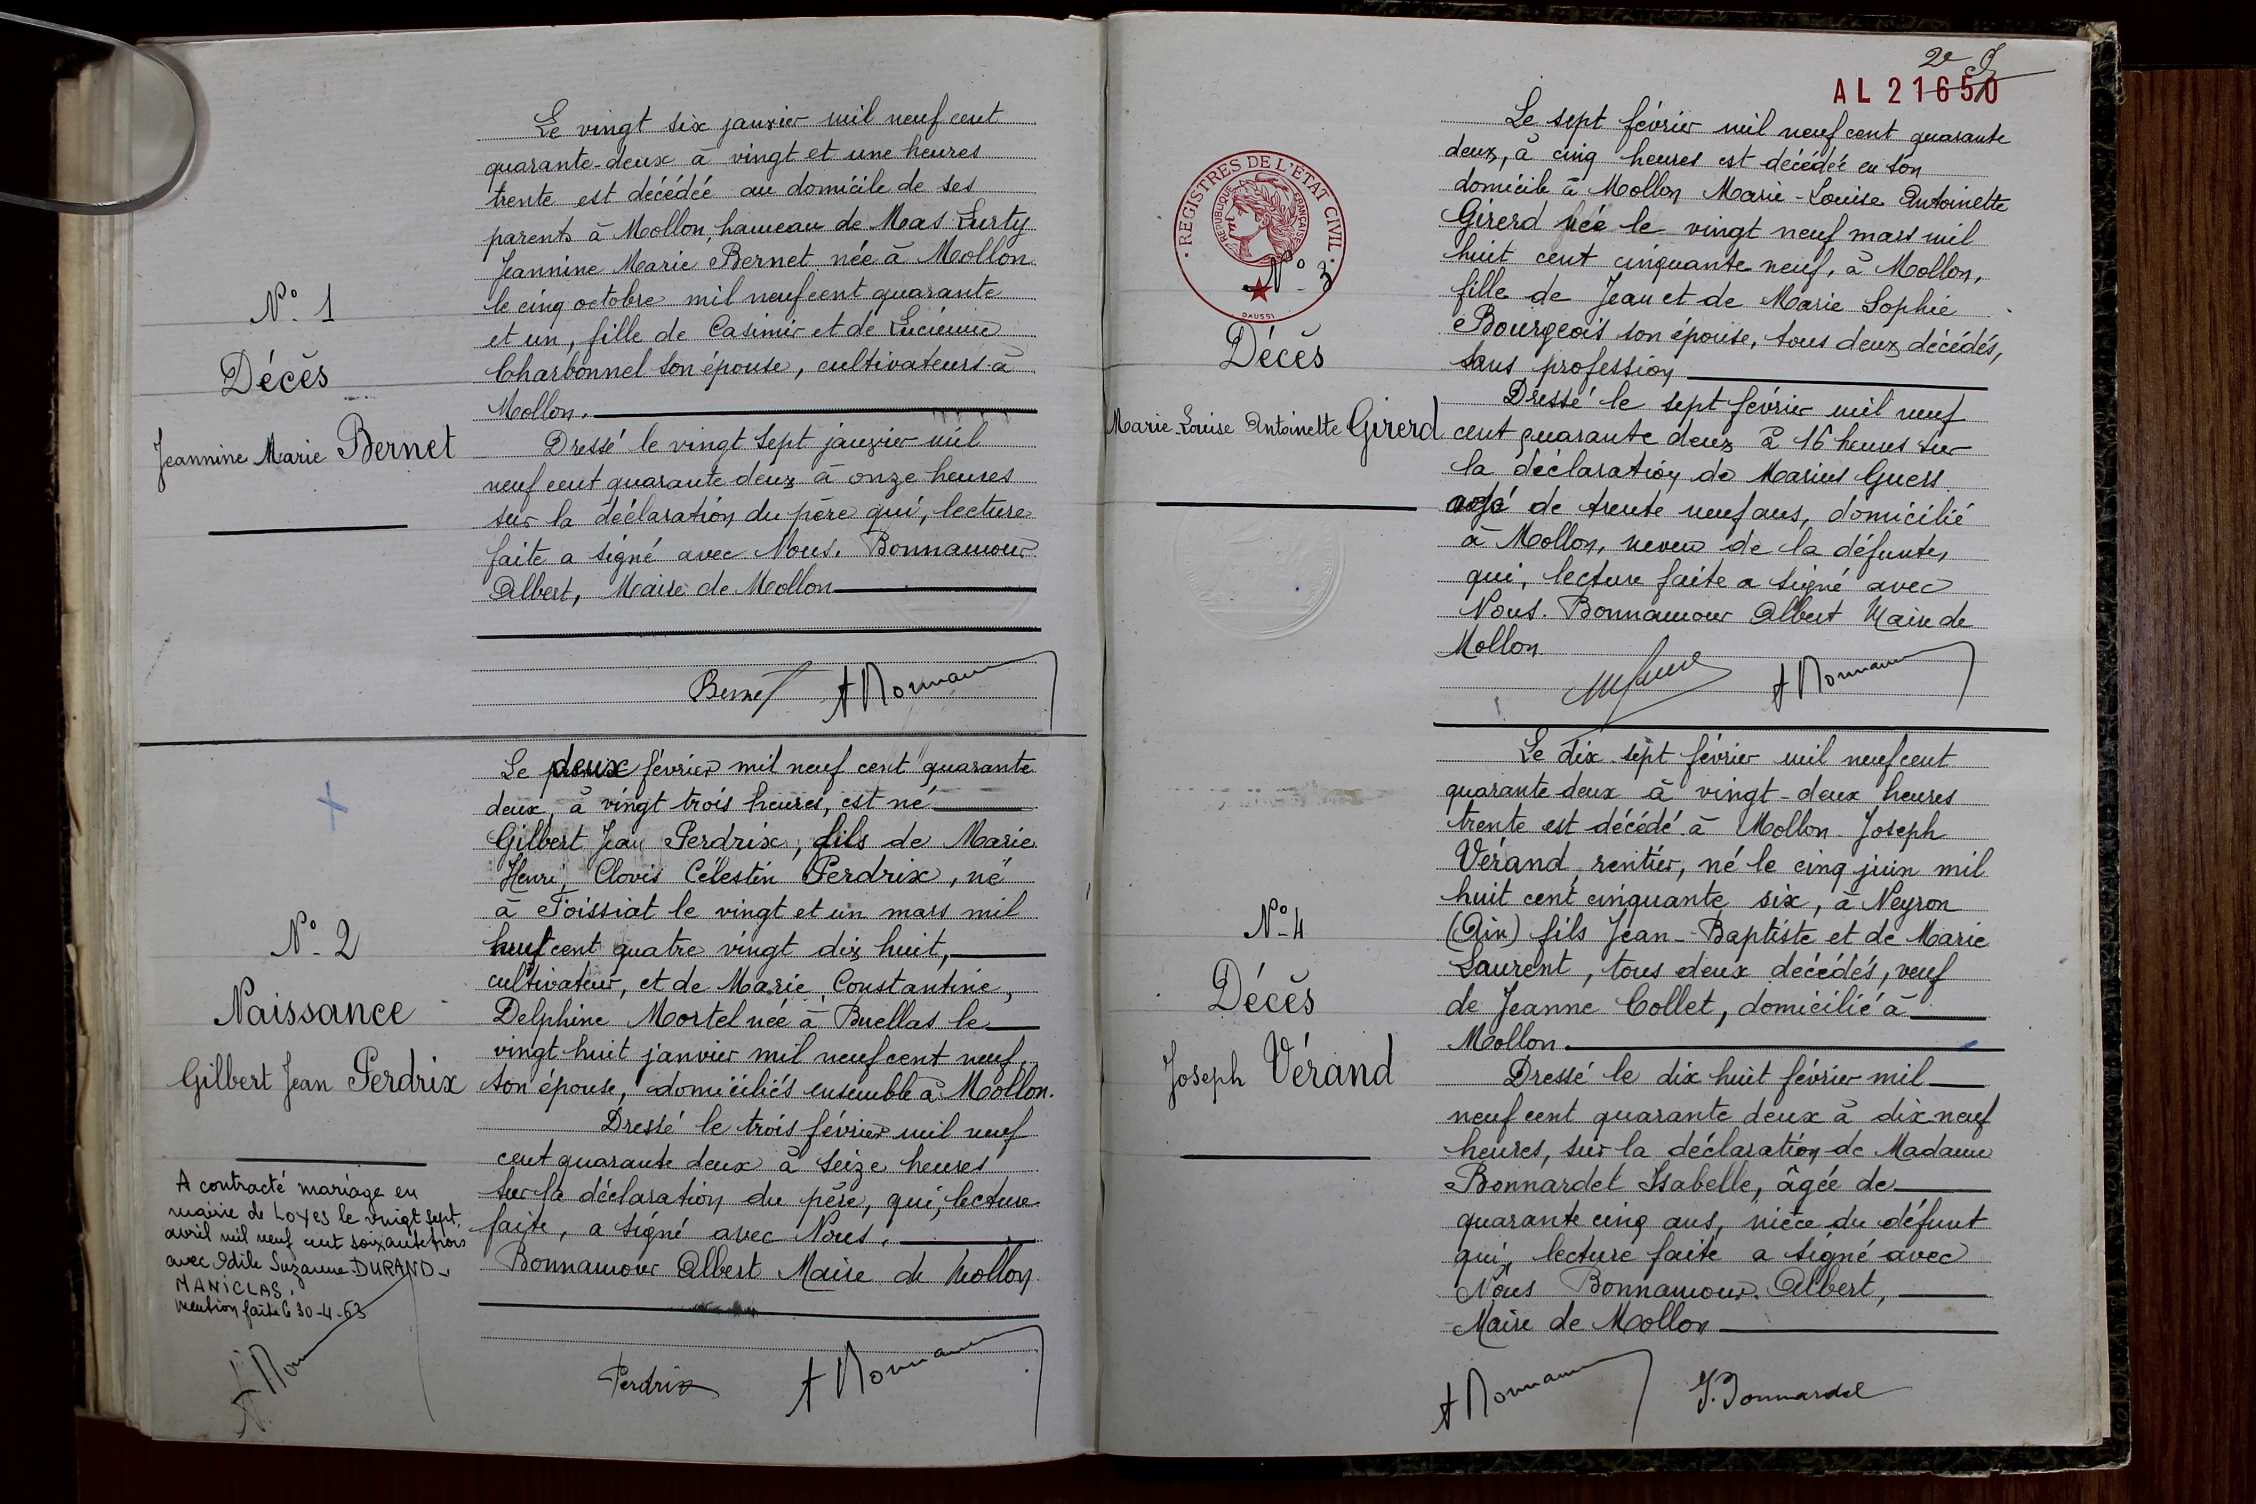 N° 1
Décès
Jeannine Marie Bernet
Le vingt six janvier mil neuf cent
quarante-deux à vingt et une heures
trente est décédée au domicile de ses
parents à Mollon, hameau de Mas Lurty
Jeannine Marie Bernet née à Mollon
le cinq octobre mil neuf cent quarante
et un, fille de Casimir et de Lucienne
Charbonnel son épouse, cultivateurs à
Mollon.
Dressé le vingt sept janvier mil
neuf cent quarante deux à onze heures
sur la déclaration du père qui, lecture
faite a signé avec Nous. Bonnamour
Albert, Maire de Mollon
Bernet A Bonnamour
N° 2
Naissance
Gilbert Jean Perdrix
Le deux février mil neuf cent quarante
deux, à vingt trois heures, est né
Gilbert Jean Perdrix, fils de Marie
Henri, Clovis Célestin Perdrix, né
à Foissiat le vingt et un mars mil
huit cent quatre vingt dix huit,
cultivateur, et de Marie, Constantine,
Delphine Mortel née à Buellas le
vingt huit janvier mil neuf cent neuf
son épouse, domiciliés ensemble à Mollon.
Dressé le trois février mil neuf
cent quarante deux à seize heures
sur la déclaration du père, qui, lecture
faite, a signé avec Nous.
Bonnamour Albert Maire de Mollon
Perdrix A Bonnamour
A contracté mariage en
mairie de Loyes le vingt sept
avril mil neuf cent soixante trois
avec Odile Suzanne DURAND-
MANICLAS.
Mention faite le 30-4-63
2e
AL 21650
REGISTRES DE L'ETAT CIVIL
REPUBLIQUE FRANÇAISE
DAUSSI
N° 3
Décès
Marie Louise Antoinette Girerd
Le sept février mil neuf cent quarante
deux, à cinq heures est décédée en son
domicile à Mollon Marie-Louise Antoinette
Girerd née le vingt neuf mars mil
huit cent cinquante neuf, à Mollon,
fille de Jean et de Marie Sophie
Bourgeois son épouse, tous deux décédés,
sans profession
Dressé le sept février mil neuf
cent quarante deux à 16 heures sur
la déclaration de Marius Guers
agé de trente neuf ans, domicilié
à Mollon, neveu de la défunte,
qui, lecture faite a signé avec
Nous. Bonnamour Albert Maire de
Mollon
A Bonnamour
N° 4
Décès
Joseph Vérand
Le dix sept février mil neuf cent
quarante deux à vingt-deux heures
trente est décédé à Mollon Joseph
Vérand, rentier, né le cinq juin mil
huit cent cinquante six, à Neyron
(Ain) fils Jean-Baptiste et de Marie
Laurent, tous deux décédés, veuf
de Jeanne Collet, domicilié à
Mollon
Dressé le dix huit février mil
neuf cent quarante deux à dix neuf
heures, sur la déclaration de Madame
Bonnardel Isabelle, âgée de
quarante cinq ans, nièce du défunt
qui, lecture faite a signé avec
Nous Bonnamour Albert,
Maire de Mollon
A Bonnamour I. Bonnardel